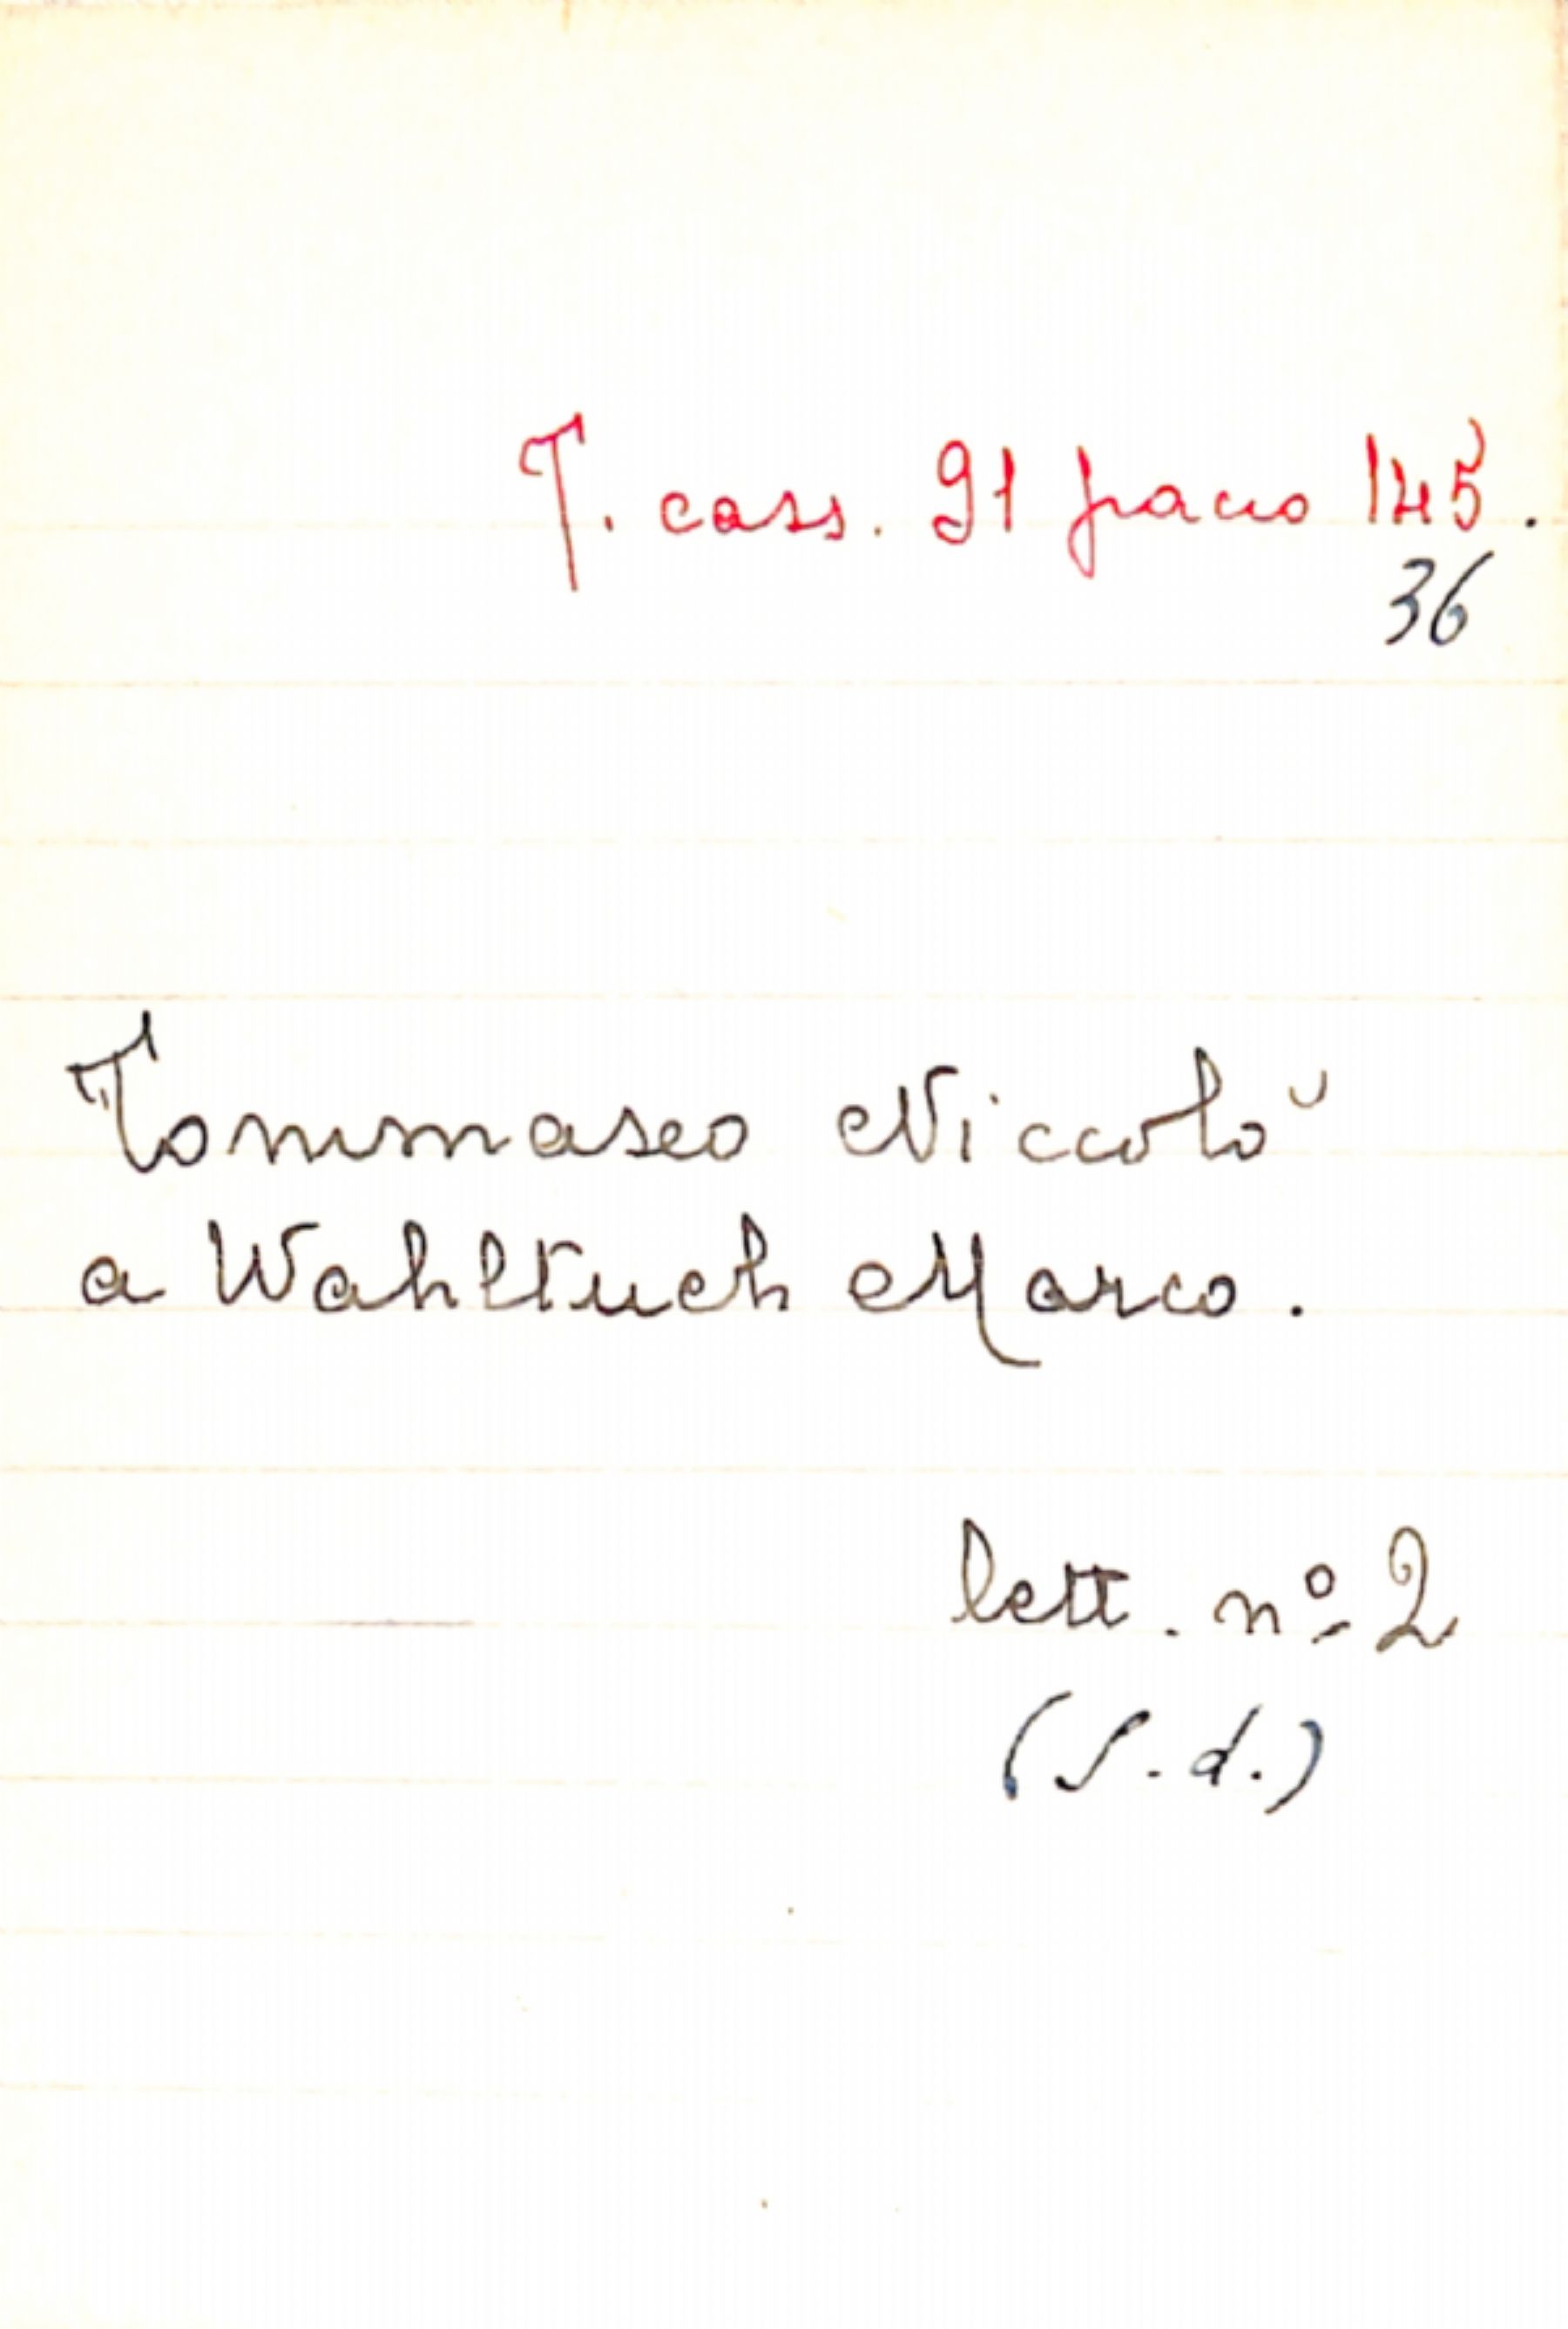 T. cass. 91 pacco 145.
36
Tommaseo Niccolò
a Wahltuch Marco.
lett. nº 2
(S.d.)